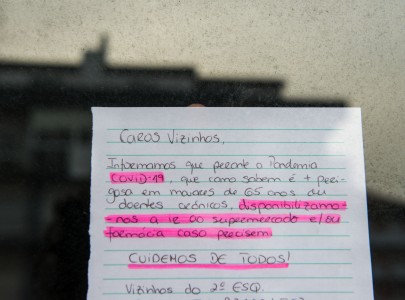 Caros Vizinhos,
Informamos que perante a Pandemia
COVID-19, que como sabem é + peri-
gosa em maiores de 65 anos ou
doentes crónicos, disponibilizamo-
-nos a ir ao supermercado e/ou
farmácia caso precisem
CUIDEMOS DE TODOS!
Vizinhos do 2º ESQ.